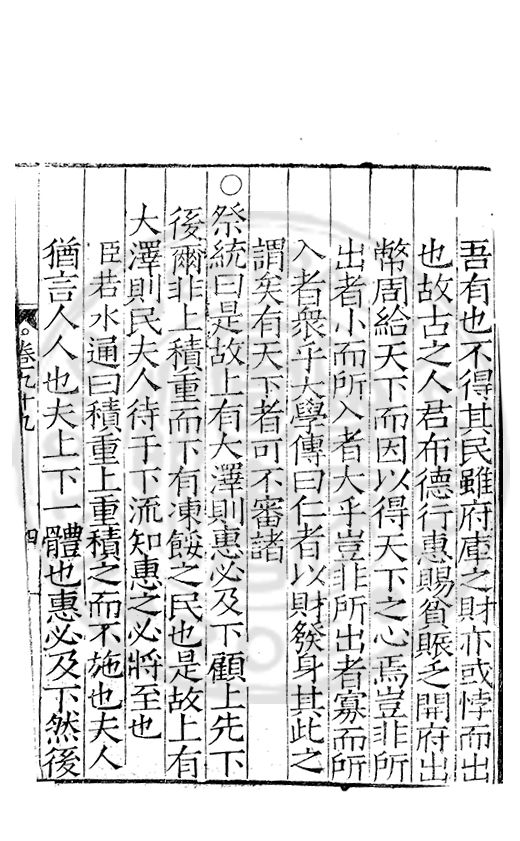 吾有也不得其民雖府庫之財亦或悖而出
也故古之人君布德行惠賜貧賑乏開府出
幣周給天下而因以得天下之心焉豈非所
出者小而所入者大乎豈非所出者寡而所
入者衆乎大學傳曰仁者以財發身其此之
謂矣有天下者可不審諸
○祭統曰是故上有大澤則惠必及下顧上先下
後爾非上積重而下有凍餒之民也是故上有
大澤則民夫人待于下流知惠之必將至也
臣若水通曰積重上重積之而不施也夫人
猶言人人也夫上下一體也惠必及下然後
卷九十九
四